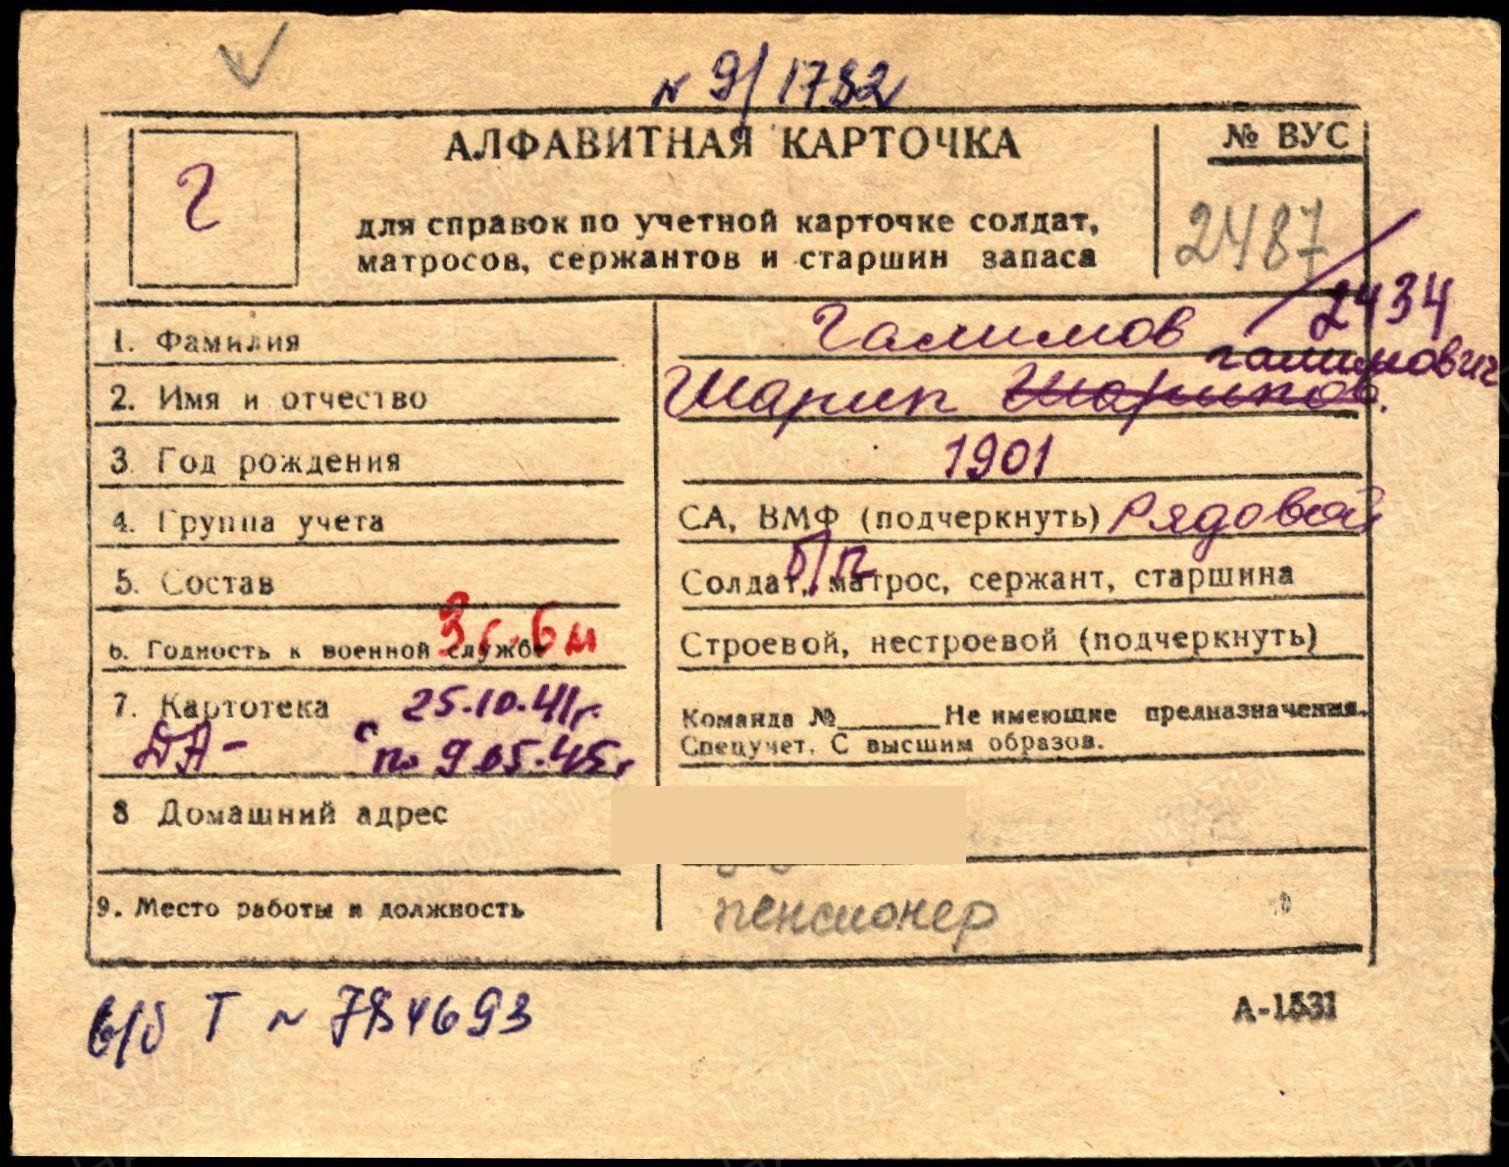 № 9/1782
АЛФАВИТНАЯ КАРТОЧКА
№ ВУС
Г
для справок по учетной карточке солдат,
матросов, сержантов и старшин запаса
2487
2434
1. Фамилия Галимов
Галимович
2. Имя и отчество Шарип Шарипов.
3. Год рождения 1901
4. Группа учета СА, ВМФ (подчеркнуть) Рядовой
б/п
5. Состав Солдат, матрос, сержант, старшина
3 г. 6 м
6. Годность к военной службе Строевой, нестроевой (подчеркнуть)
7. Картотека с 25.10.41г. Команда №______Не имеющие предназначения.
ДА- по 9.05.45г Спецучет. С высшим образов.
8 Домашний адрес
9. Место работы и должность пенсионер
в/б Т № 784693
А-1531